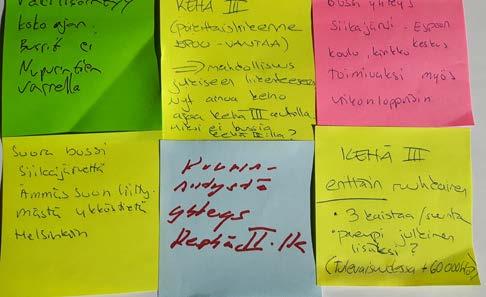 koko ajan.
Bussit ei
Nupurintien
varrella
KEHÄ III
(poikittaisliikenne
ESPOO - VANTAA)
→ mahdollisuus
julkiseen liikenteeseen
Nyt ainoa keino
ajaa kehä III autolla.
Miksi ei busseja
kehä III:lla?
bussi yhteys
Siikajärvi - Espoon
koulu, kirkko keskus
toimivaksi myös
viikonloppuisin
Suora bussi
Siikajärveltä
Ämmässuon liitty-
mästä ykköstietä
Helsinkiin
Kunnin-
yhteys
Kehä II:lle
KEHÄ III
erittäin ruuhkainen
• 3 kaistaa/suunta
• parempi julkinen
lisäksi?
(Tulevaisuudessa +60 000 hlö)